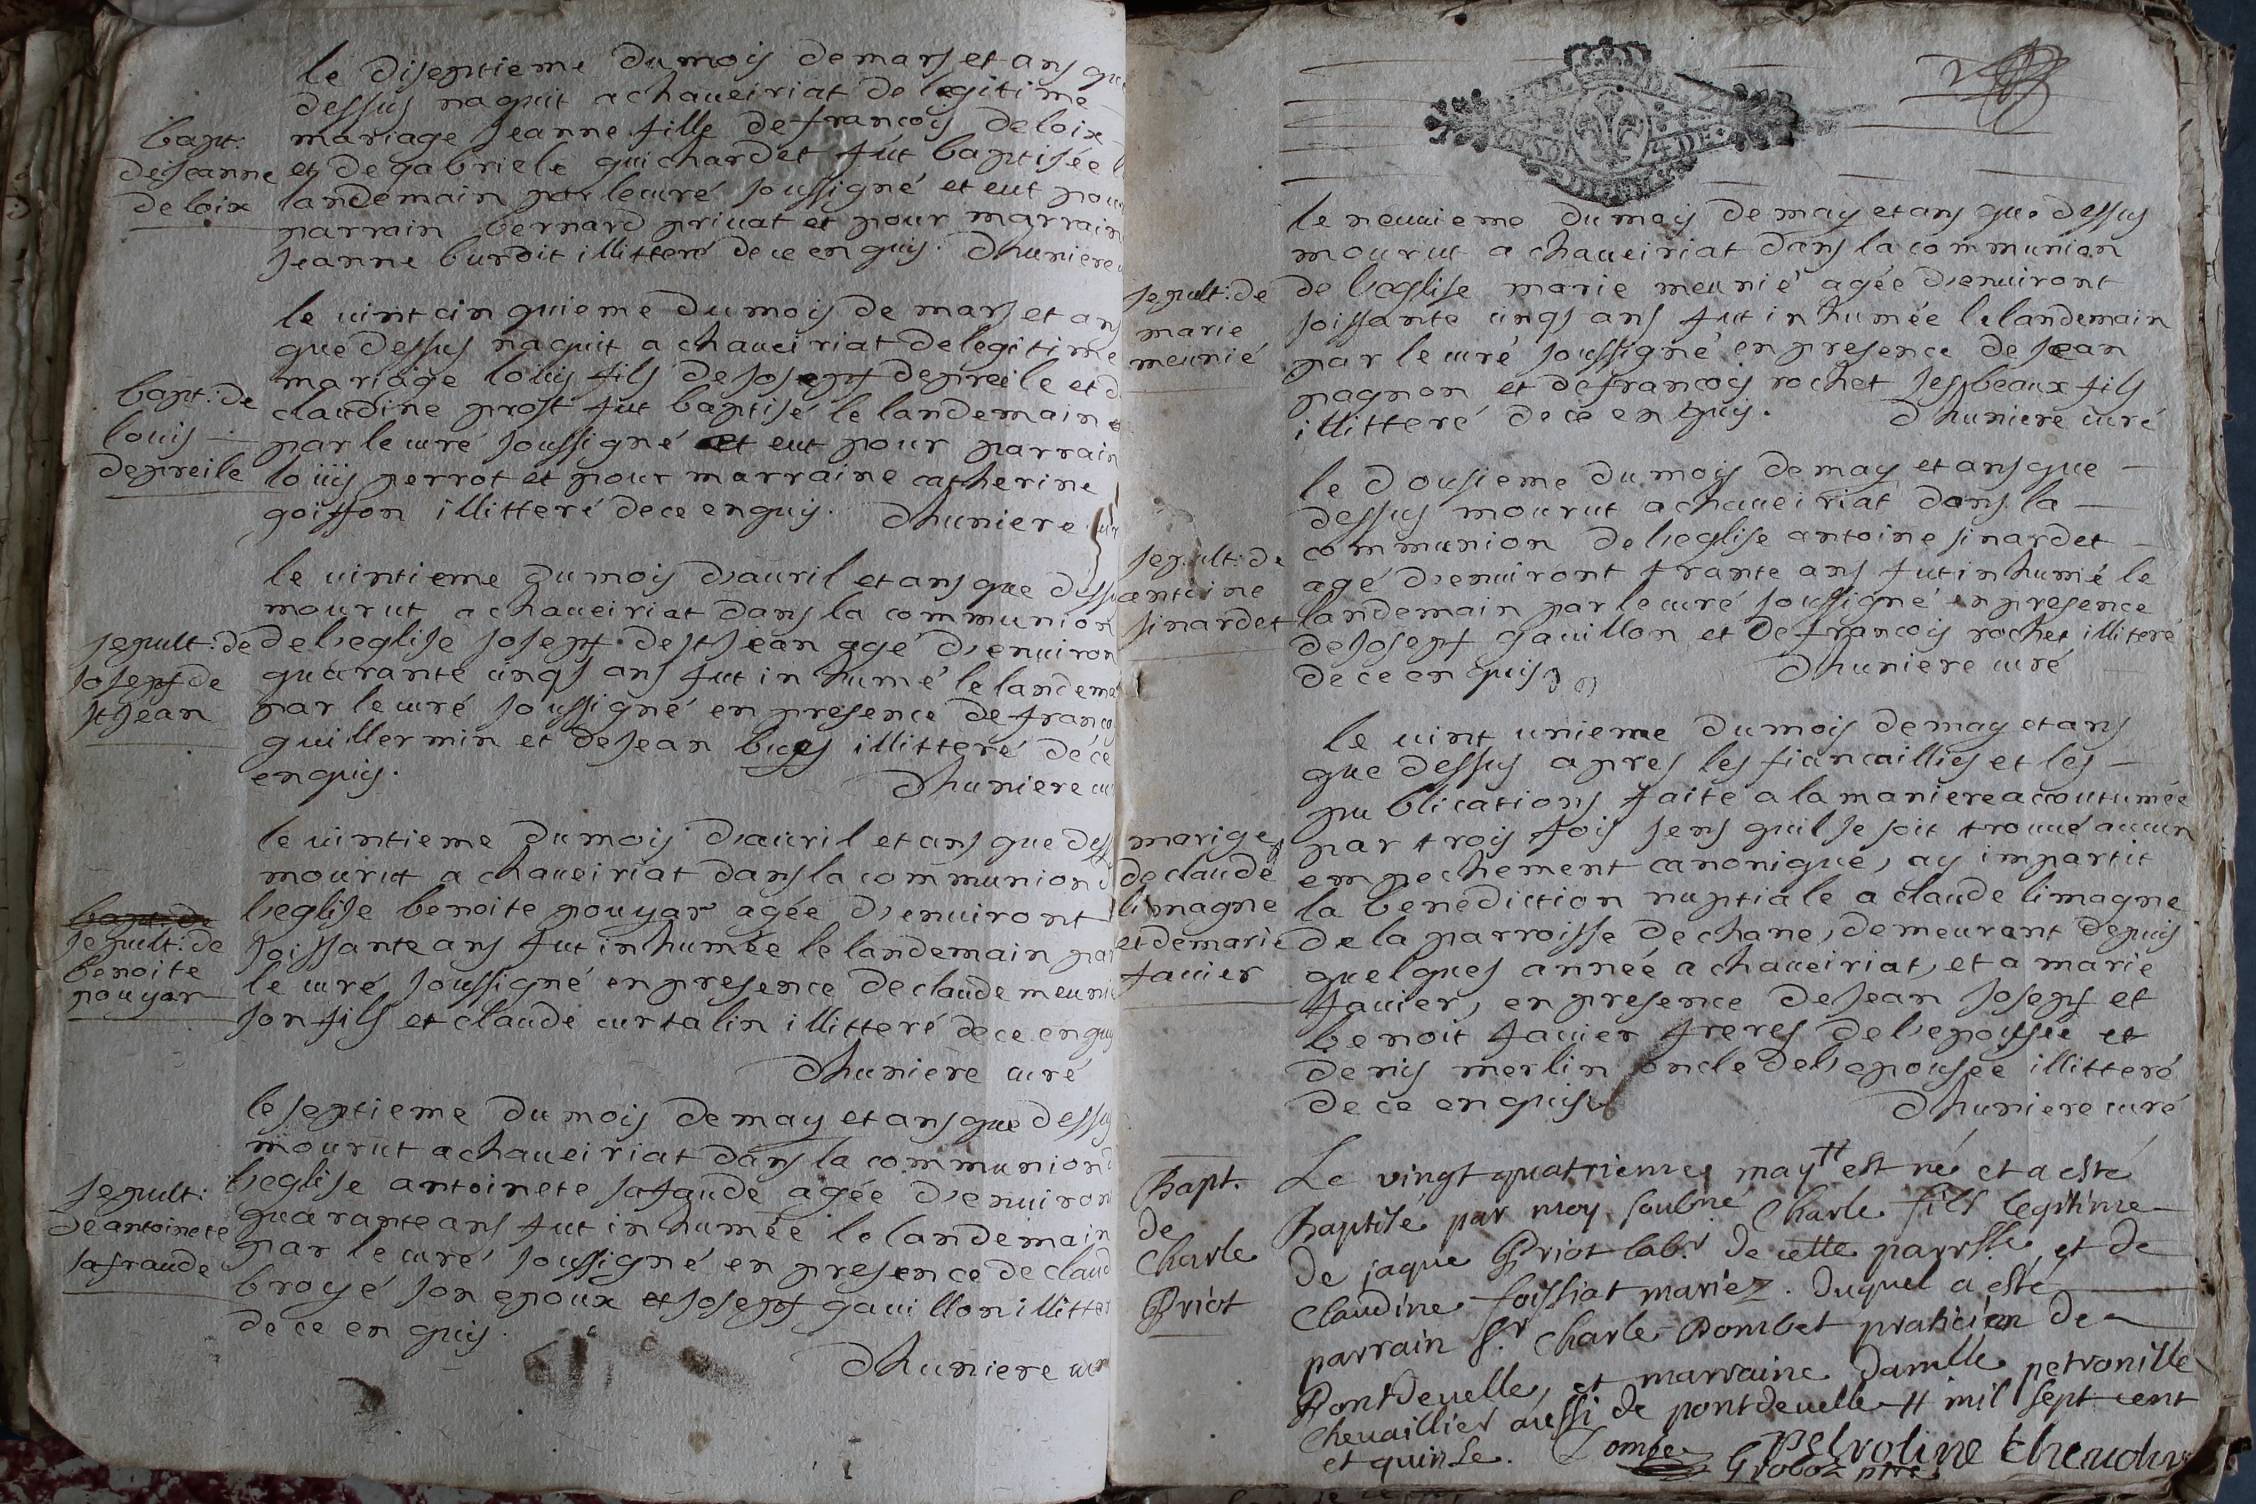 le diseptieme du mois de mars et ans que
dessus naquit a chaveiriat de legitime
mariage Jeanne fille de francois deloix
et de gabriele guichardet fut baptisée
landemain par le curé soussigné et eut pour
parrain bernard privat et pour marraine
Jeanne burdit illitteré de ce enquis. Dhuniere
bapt:
de Jeanne
deloix
le vint cinquieme du mois de mars et ans
que dessus naquit a chaveiriat de legitime
mariage louis fils de Joseph depreile et d
claudine prost fut baptisé le landemain
par le curé soussigné et eut pour parrain
louis perrot et pour marraine catherine
goiffon illitteré de ce enquis. Dhuniere
bapt: de
louis
depreile
le vintieme du mois d'avril et ans que dessu
mourut a chaveiriat dans la communion
de l'eglise Joseph de st Jean agé d'environ
quarante cinqs ans fut inhumé le landema
par le curé soussigné en presence de franco
guillermin et de Jean illitteré de ce
enquis.
Dhuniere cu
sepult: de
Joseph de
st Jean
le vintieme du mois d'avril et ans que dess
mourut a chaveiriat dans la communion d
l'eglise benoite pouyar agée d'environt
soissante ans fut inhumée le landemain par
le curé soussigné en presence de claude meunie
son fils et claude curtalin illitteré de ce enquis
Dhuniere curé
bapt: de
sepult: de
benoite
pouyar
le septieme du mois de may et ans que dessus
mourut a chaveiriat dans la communion d
l'eglise antoinete safaude agée d'environ
quarante ans fut inhumée le landemain
par le curé soussigné en presence de claud
broyé son epoux et Joseph gavillon illitter
de ce enquis.
Dhuniere cur
sepult:
de antoinete
safraude
le neuvieme du mois de may et ans que dessus
mourut a chaveiriat dans la communion
de l'eglise marie meunié agée d'environt
soissante cinqs ans fut inhumée le landemain
par le curé soussigné en presence de Jean
pagnon et de francois rochet ses beaux fils
illitteré de ce enquis. Dhuniere curé
sepult: de
marie
meunié
le dousieme du mois de may et ans que
dessus mourut a chaveiriat dans la
communion de l'eglise antoine sinardet
agé d'environt trante ans fut inhumé le
landemain par le curé soussigné en presence
de Joseph gavillon et de francois rochet illiteré
de ce enquis Dhuniere curé
sepult: de
antoine
sinardet
le vint unieme du mois de may et ans
que dessus apres les fiancaillies et les
publications faite a la maniere accoutumée
par trois fois sens quil se soit trouvé aucun
empechement canonique, ay impartit
la benediction nuptiale a claude limagne
de la parroisse de chane, demeurant depuis
quelques année a chaveiriat, et a marie
favier, en presence de Jean Joseph et
benoit favier freres de l'epousée et
denis merlin oncle de l'epousée illitteré
de ce enquis Dhuniere curé
marige
de claude
limagne
et de marie
favier
Le vingt quatrieme may # est né et a esté
Baptisé par moy soubné Charle fils legitime
de jaque Priot labr. de cette parrsse. et de
Claudine foissiat mariez. duquel a esté
parrain Sr. Charle Dombet praticien de
Pontdevelle, et marraine damlle petronille
Chevaillier aussi de pontdevelle # mil sept cent
et quinze. petroline
Bapt.
de
Charle
Priot